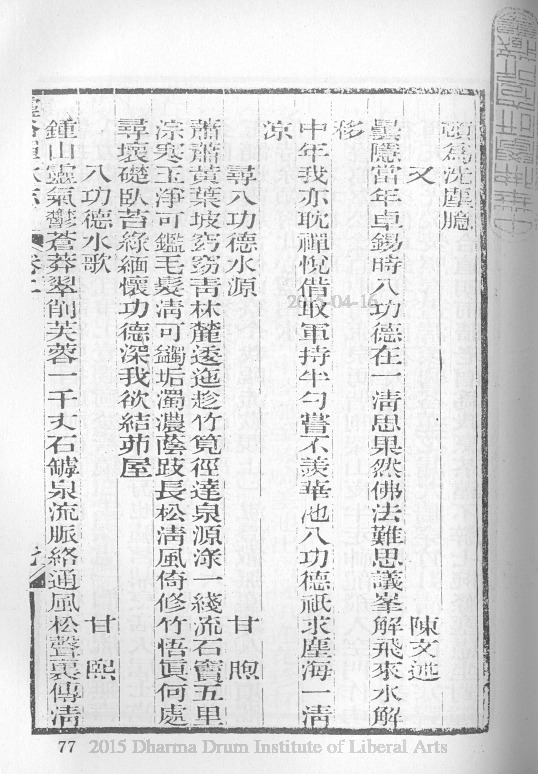 頭為洗塵臆
又 陳文述
曇隱當年卓錫時八功德在一淸思果然佛法難思議峯解飛來水解
移
中年我亦耽禪悅借取軍持半勺嘗不羨華池八功德祇求塵海一淸
涼
尋八功德水源 甘煦
蕭蕭黃葉坡窈窈靑林麓逶迤趁竹筧徑達泉源淥一綫流石竇五里
淙寒玉淨可鑑毛髮淸可蠲垢濁濃蔭跂長松淸風倚修竹悟眞何處
尋壞礎臥苔綠緬懷功德深我欲結茆屋
八功德水歌 甘熙
鍾山靈氣鬱蒼莽翠削芙蓉一千丈石罅泉流脈絡通風松聲裏傳淸
卷上
77 2015 Dharma Drum Institute of Liberal Arts